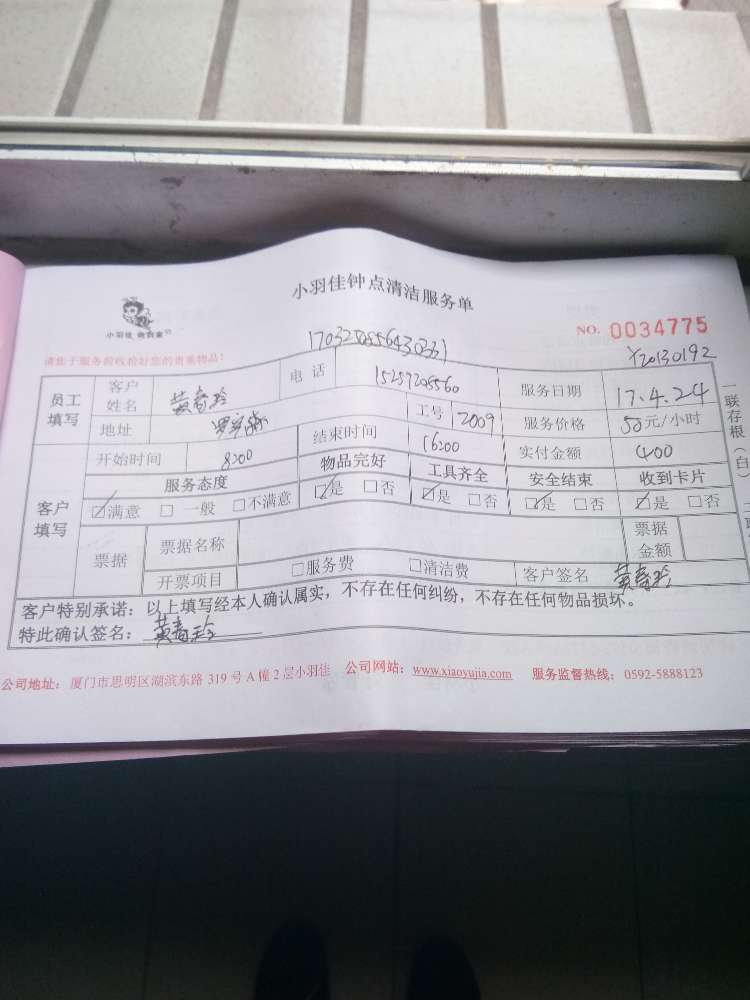 小羽佳钟点清洁服务单
小羽佳
NO. 0034775
Y20130192
请您于服务前收拾好您的贵重物品!
员工填写 客户姓名 黄青玲 电话 服务日期 17.4.24
地址 工号 12009 服务价格 50元/小时
客户填写 开始时间 8:00 结束时间 16:00 实付金额 400
服务态度 物品完好 工具齐全 安全结束 收到卡片
☑满意 □一般 □不满意 ☑是 □否 ☑是 □否 ☑是 □否 ☑是 □否
票据 票据名称 票据金额
开票项目 □服务费 □清洁费 客户签名 黄青玲
客户特别承诺:以上填写经本人确认属实,不存在任何纠纷,不存在任何物品损坏。
特此确认签名:黄青玲
公司地址:厦门市思明区湖滨东路319号A幢2层小羽佳 公司网站:www.xiaoyujia.com 服务监督热线:0592-5888123
一联存根(白)